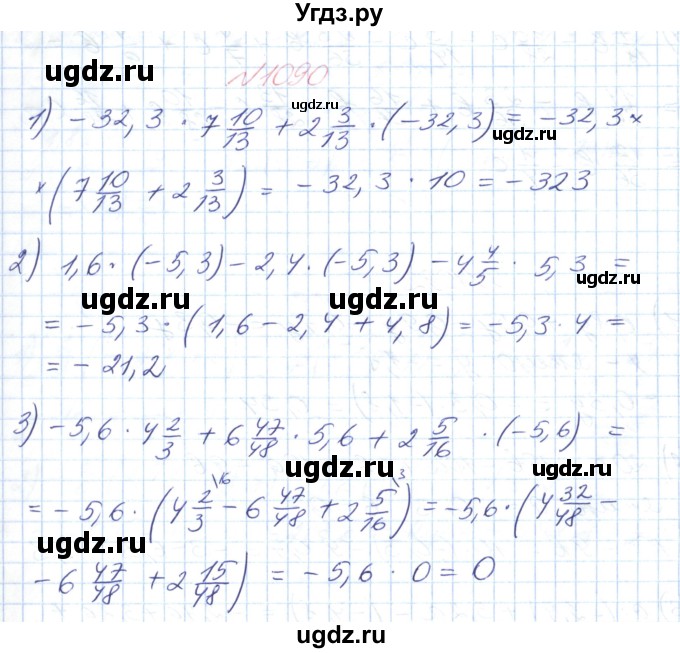 Угдз.ру
№1090
ugdz.ru ugdz.ru
1) -32,3 · 7 10/13 + 2 3/13 · (-32,3) = -32,3 ×
ugdz.ru
× (7 10/13 + 2 3/13) = -32,3 · 10 = -323
2) 1,6 · (-5,3) - 2,4 · (-5,3) - 4 4/5 · 5,3 =
ugdz.ru ugdz.ru ugdz.ru
= -5,3 · (1,6 - 2,4 + 4,8) = -5,3 · 4 =
= -21,2
3) -5,6 · 4 2/3 + 6 47/48 · 5,6 + 2 5/16 · (-5,6) =
ugdz.ru ugdz.ru
= -5,6 · (4 2/3 \16 - 6 47/48 + 2 5/16 \3) = -5,6 · (4 32/48 -
ugdz.ru
- 6 47/48 + 2 15/48) = -5,6 · 0 = 0
ugdz.ru
ugdz.ru